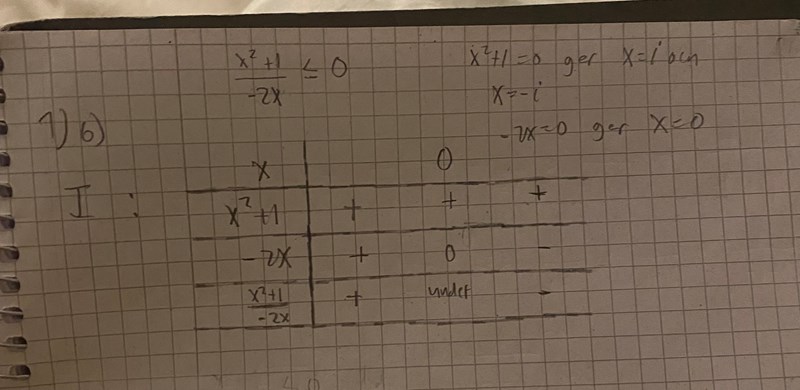 x²+1 / -2x ≤ 0
x²+1=0 ger x=i och
x=-i
-2x=0 ger x=0
1)b)
I:
x | 0
x²+1 | + + +
-2x | + 0 -
x²+1 / -2x | + undef -